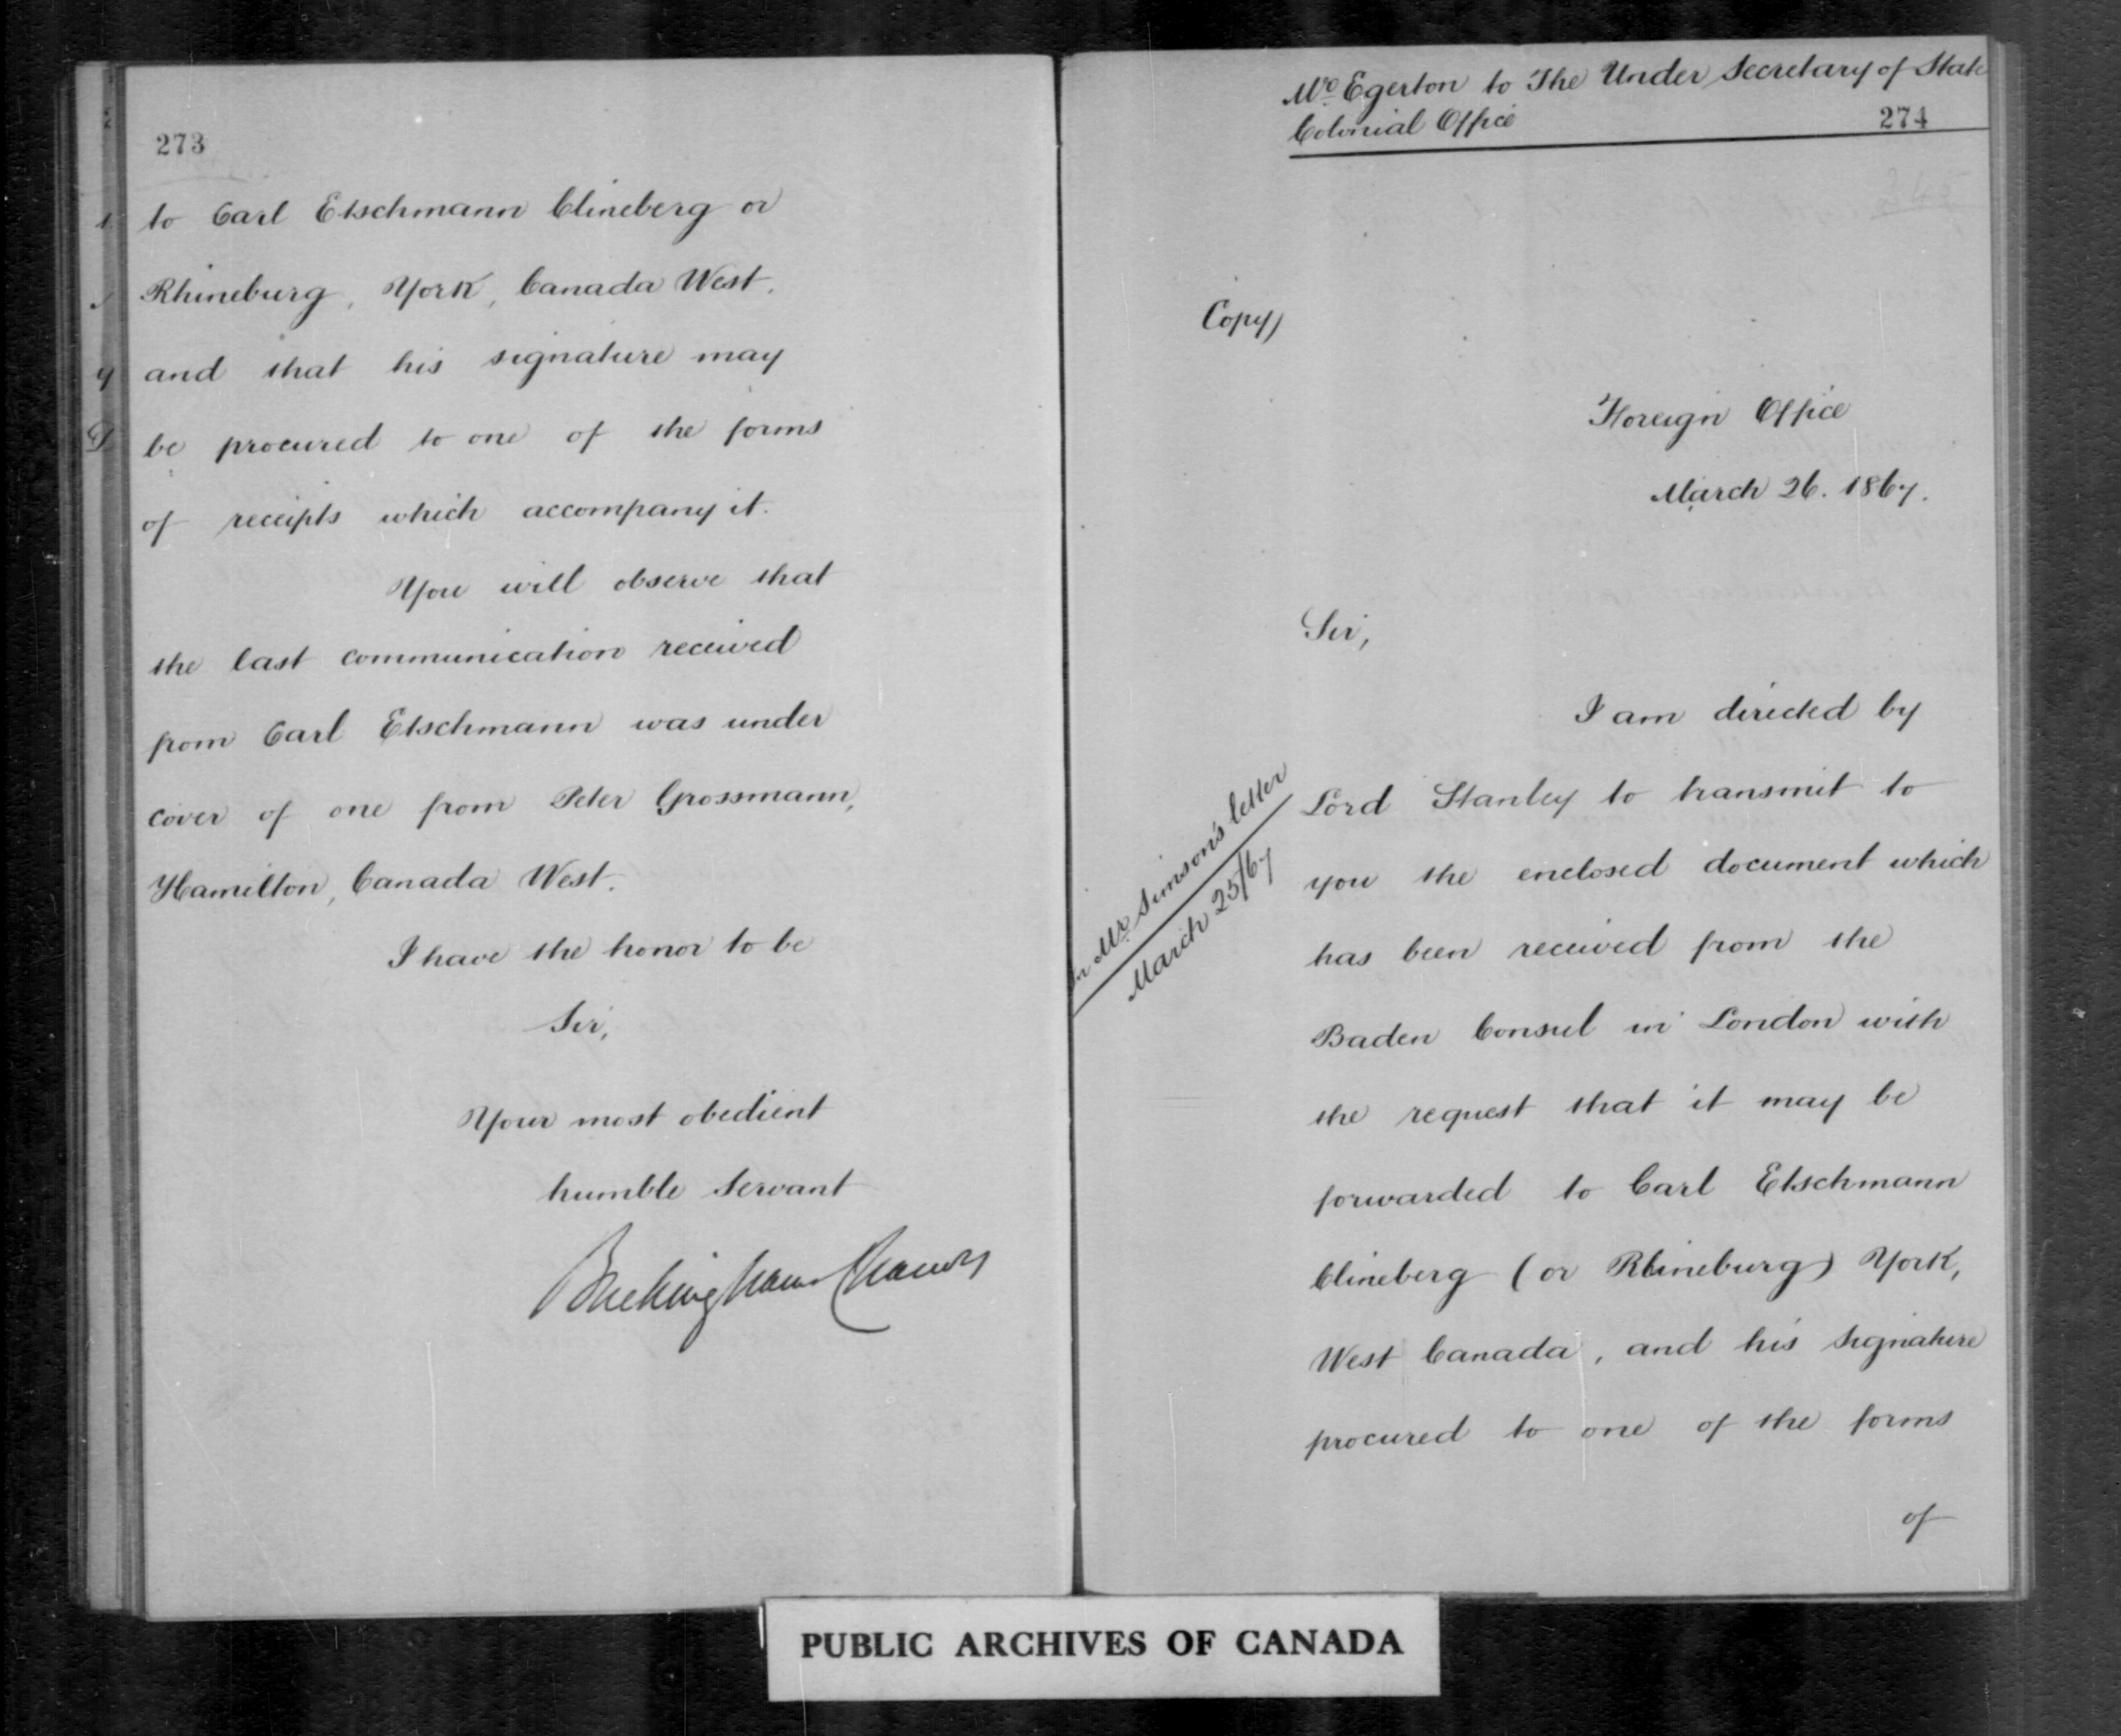 273
to Carl Etschmann Clineberg or
Rhineburg, York, Canada West.
and that his signature may
be procured to one of the forms
of receipts which accompany it.
You will observe that
the last communication received
from Carl Etschmann was under
cover of one from Peter Grossmann,
Hamilton, Canada West.
I have the honor to be
Sir,
Your most obedient
humble Servant
Buckingham Chandos
Mr Egerton to The Under Secretary of State
Colonial Office
274
Copy)
Foreign Office
March 26. 1867.
Sir,
I am directed by
Lord Stanley to transmit to
you the enclosed document which
has been received from the
Baden Consul in London with
the request that it may be
forwarded to Carl Etschmann
Clineberg (or Rhineburg) York,
West Canada, and his signature
procured to one of the forms
of
in Mr Simson's letter
March 25/67
PUBLIC ARCHIVES OF CANADA